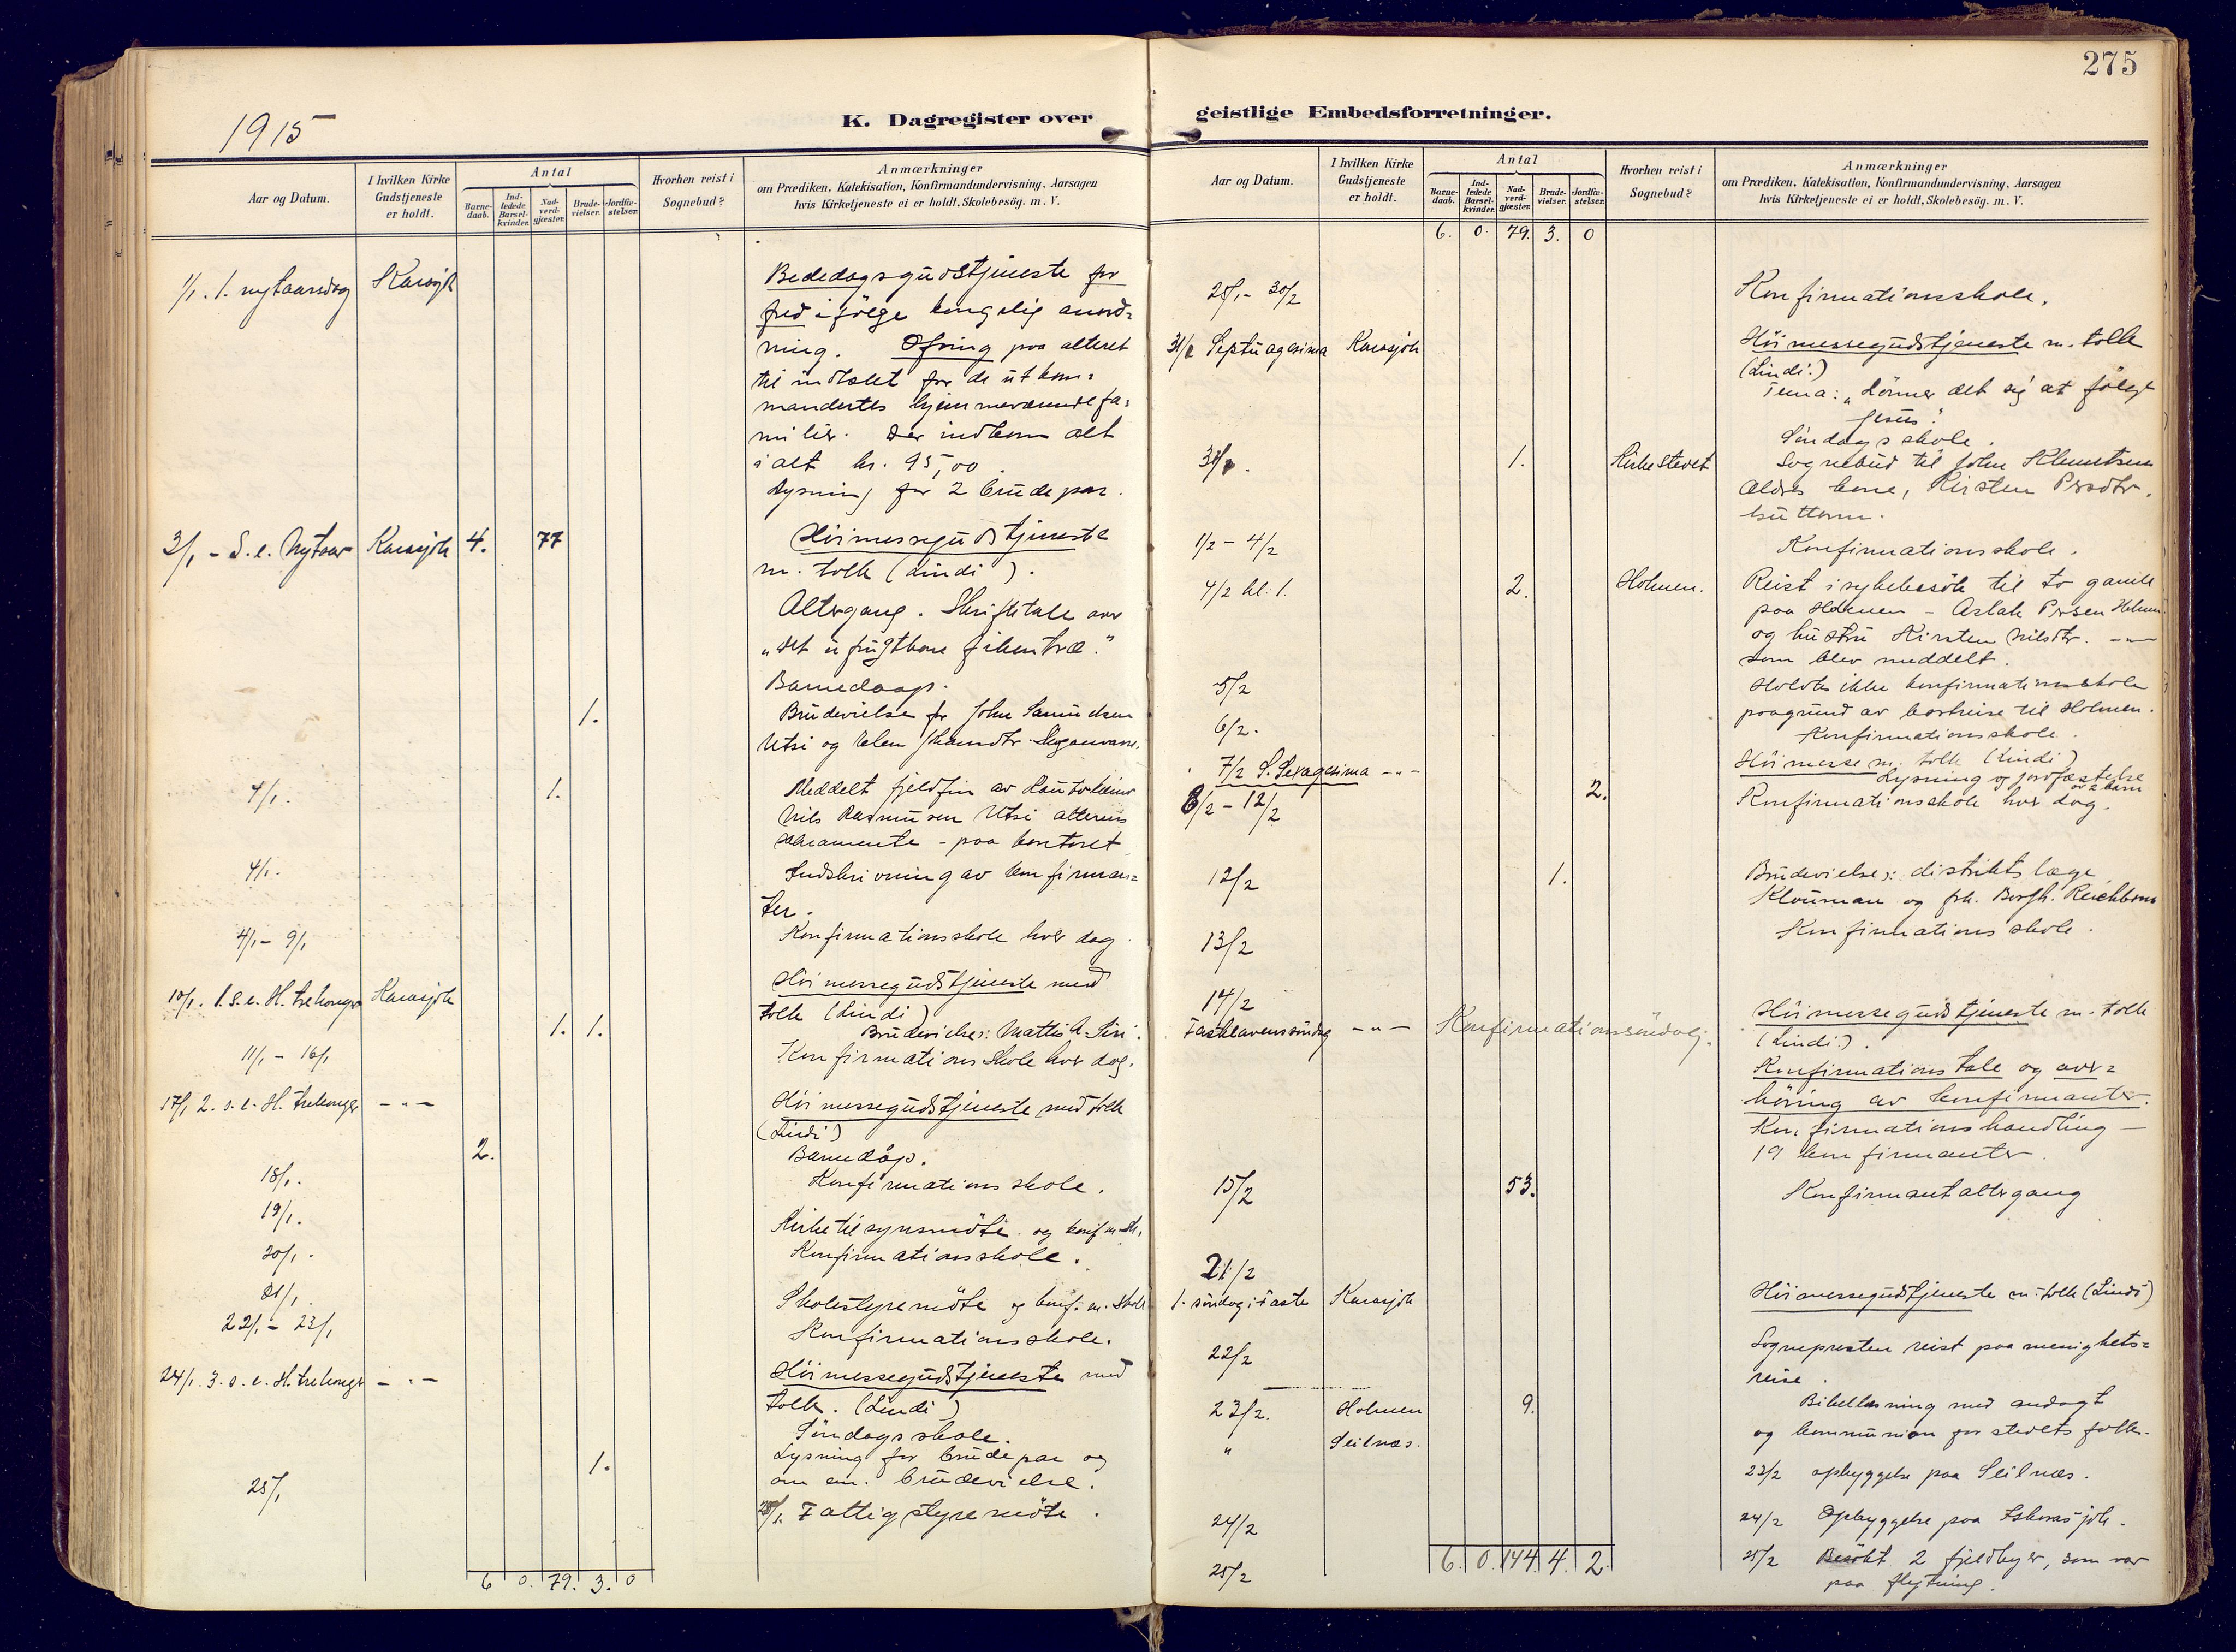 275
1915
K. Dagregister over
geistlige Embedsforretninger.
Aar og Datum.
I hvilken Kirke Gudstjeneste er holdt.
Antal
Barne-daab.
Ind-ledede Barsel-kvinder.
Nad-verd-gjæster.
Brude-vielser.
Jordfæ-stelser.
Hvorhen reist i Sognebud?
Anmærkninger
om Prædiken, Katekisation, Konfirmandundervisning, Aarsagen
hvis Kirketjeneste ei er holdt, Skolebesög. m. V.
1/1. 1. nytaarsdag Karasjok Bededagsgudstjeneste for
fred ifölge kongelig anord=
ning. Ofring paa alteret
til indtælt for de utkom=
mandertes hjemmeværende fa=
milier. Der indkom alt
i alt kr. 95,00.
Lysning for 2 brudepar.
3/1 - S. e. Nytaar Karasjok 4. 77 Höimessegudstjeneste
m. tolk (Lindi).
Altergang. Skriftetale over
"det ufrugtbare fikentræ."
Barnedaap.
1. Brudevielse for John Samuelsen
Utsi og Elen
4/1. 1. Meddelt fjeldfin av Kautokeino
Nils Rasmusen Utsi alterens
sakramente - paa kontoret
4/1. Indskrivning av konfirman=
ter.
4/1 - 9/1 Konfirmationsskole hver dag.
10/1. 1. S. e. H. trekonger Karasjok Höimessegudstjeneste med
tolk (Lindi)
1. 1. Brudevielse: Mattis A. Siri.
11/1 - 16/1 Konfirmationsskole hver dag.
17/1 2. s. e. H. trekonger -"- Höimessegudstjeneste med tolk
(Lindi)
2. Barnedåp.
18/1. Konfirmationsskole.
19/1. Kirketilsynsmöte og konfm.sk.
20/1. Konfirmationsskole.
21/1. Skolestyremöte og konf.m. skole
22/1 - 23/1 Konfirmationsskole.
24/1. 3. s. e. H. trekonger -"- Höimessegudstjeneste med
tolk. (Lindi)
Söndagsskole.
1. Lysning for brudepar og
om em. brudevielse.
25/1 Fattigstyremöte.
6 0. 79. 3. 0
Aar og Datum.
I hvilken Kirke Gudstjeneste er holdt.
Antal
Barne-daab.
Ind-ledede Barsel-kvinder.
Nad-verd-gjæster.
Brude-vielser.
Jordfæ-stelser.
Hvorhen reist i Sognebud?
Anmærkninger
om Prædiken, Katekisation, Konfirmandundervisning, Aarsagen
hvis Kirketjeneste ei er holdt, Skolebesög. m. V.
6. 0. 79. 3. 0
25/1 - 30/2 Konfirmationsskole.
31/1 Septuagesima Karasjok Höimessegudstjeneste m. tolk
(Lindi.)
Tema: "Lönner det sig at fölge
Jesus".
Söndagsskole.
31/1. 1. Kirkestedet Sognebud til John Klemetsen
ældres kone, Kirsten Persdtr.
1/2 - 4/2 Konfirmationsskole.
4/2 kl. 1. 2. Holmen. Reist i sykebesök til to gamle
paa Holmen - Aslak Persen Holmen
og hustru Kirsten Nilsdtr. -"-
som blev meddelt.
5/2 Holdtes ikke konfirmationsskole
paagrund av bortreise til Holmen.
6/2. Konfirmationsskole.
7/2 S. Sexagesima -"- Höimesse m. tolk (Lindi)
2. Lysning og jordfæstelse
av 2 barn
8/2 - 12/2 Konfirmationsskole hver dag.
12/2 1. Brudevielse: distriktslæge
Klouman og frk. Borgh. Reichborn
13/2 Konfirmationsskole.
14/2
Fastelavenssöndag -"- Konfirmationssöndag. Höimessegudstjeneste m. tolk
(Lindi.).
Konfirmationstale og over=
höring av konfirmanter.
Konfirmationshandling -
19 konfirmanter.
15/2 53. Konfirmantaltergang
21/2
1. söndag i Faste Karasjok Höimessegudstjeneste m. tolk (Lindi)
22/2 Sognepresten reist paa menighets=
reise.
23/2. Holmen 9. Bibellæsning med andagt
og kommunion for stedets folk.
" Seilnæs. 23/2 opbyggelse paa Seilnæs.
24/2 24/2 Opbyggelse paa Iskurasjok.
25/2 25/2 Besökt 2 fjeldbyer, som var
paa flytning.
6. 0. 144. 4. 2.